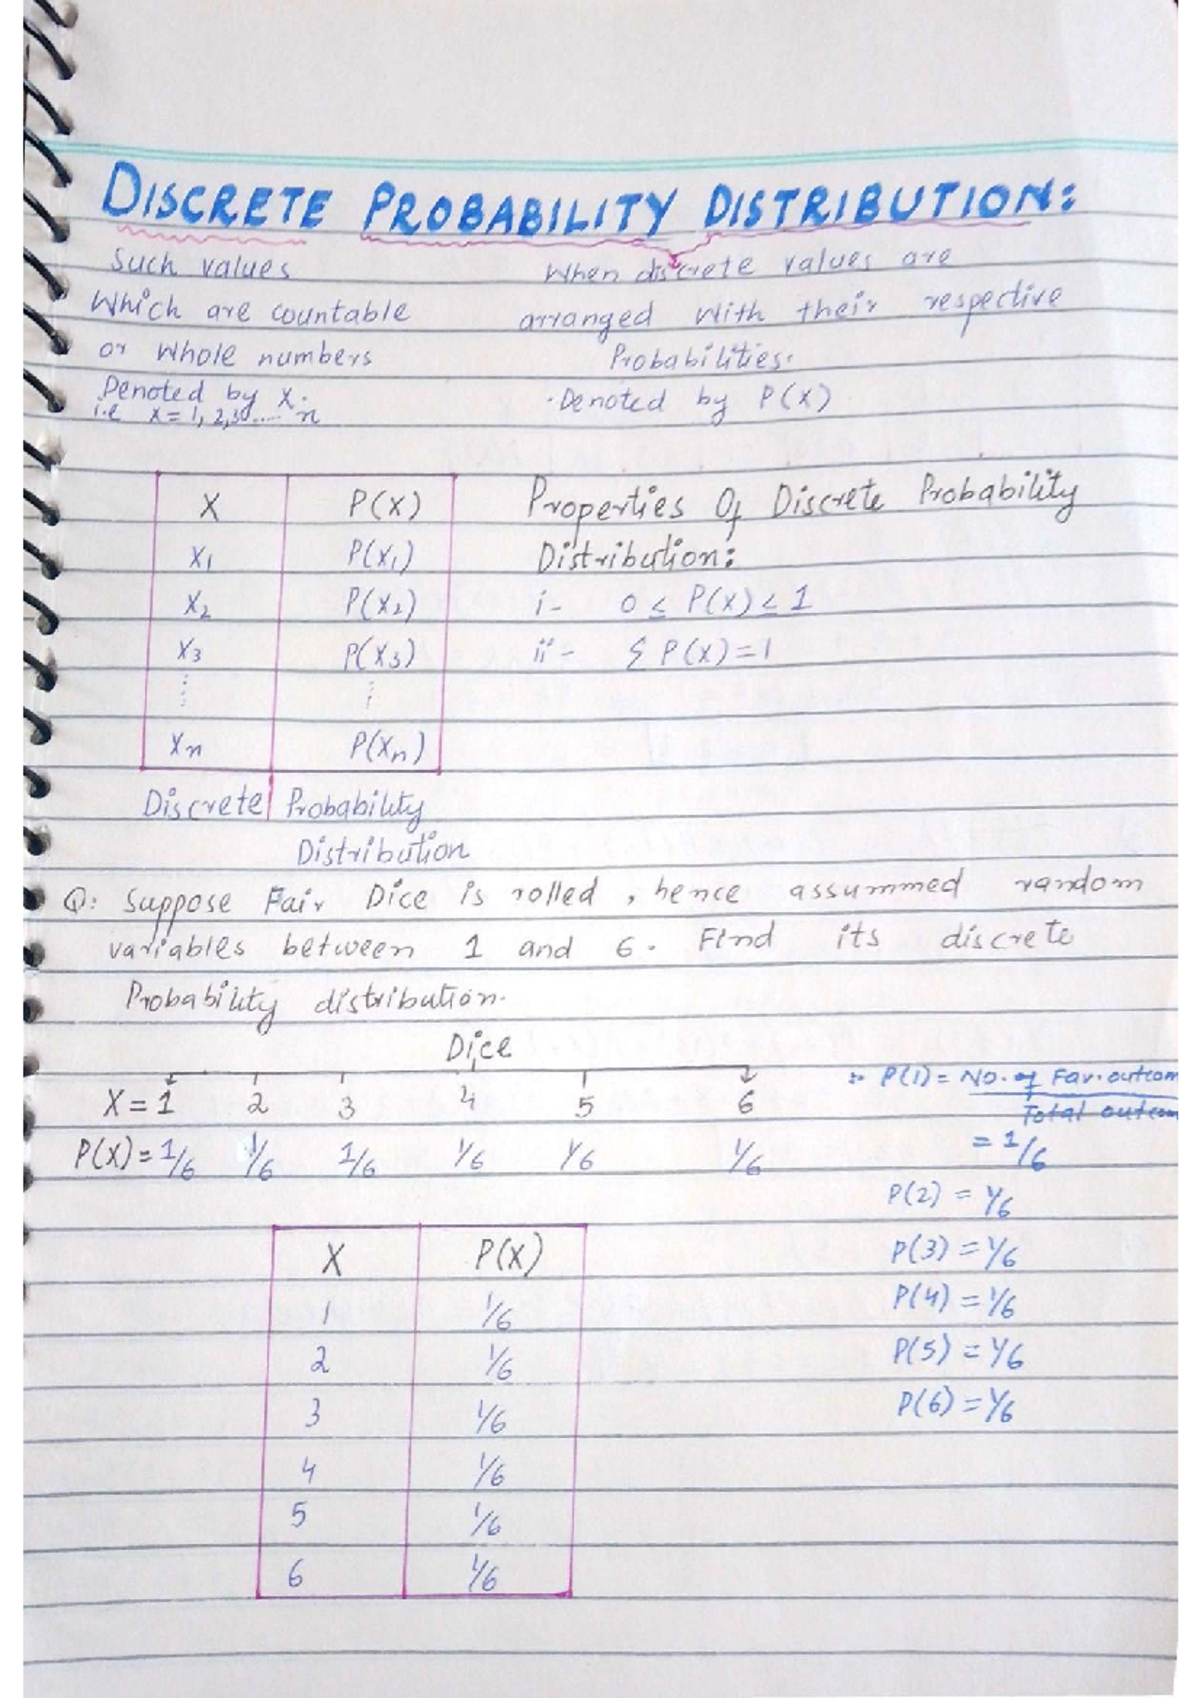 DISCRETE PROBABILITY DISTRIBUTION:
Such values
Which are countable
or Whole numbers
Denoted by X.
i.e X = 1, 2, 3 ..... n
When discrete values are
arranged With their respective
Probabilities.
·Denoted by P(X)
X P(X)
X₁ P(X₁)
X₂ P(X₂)
X₃ P(X₃)
⋮ ⋮
Xn P(Xn)
Discrete Probability
Distribution
Properties Of Discrete Probability
Distribution:
i- 0 ≤ P(X) ≤ 1
ii- Σ P(X) = 1
Q: Suppose Fair Dice is rolled , hence assummed random
variables between 1 and 6. Find its discrete
Probability distribution.
Dice
X = 1 2 3 4 5 6
P(X) = 1/6 1/6 1/6 1/6 1/6 1/6
∵ P(1) = No. of Fav. outcom
Total outcom
= 1/6
P(2) = 1/6
P(3) = 1/6
P(4) = 1/6
P(5) = 1/6
P(6) = 1/6
X P(X)
1 1/6
2 1/6
3 1/6
4 1/6
5 1/6
6 1/6